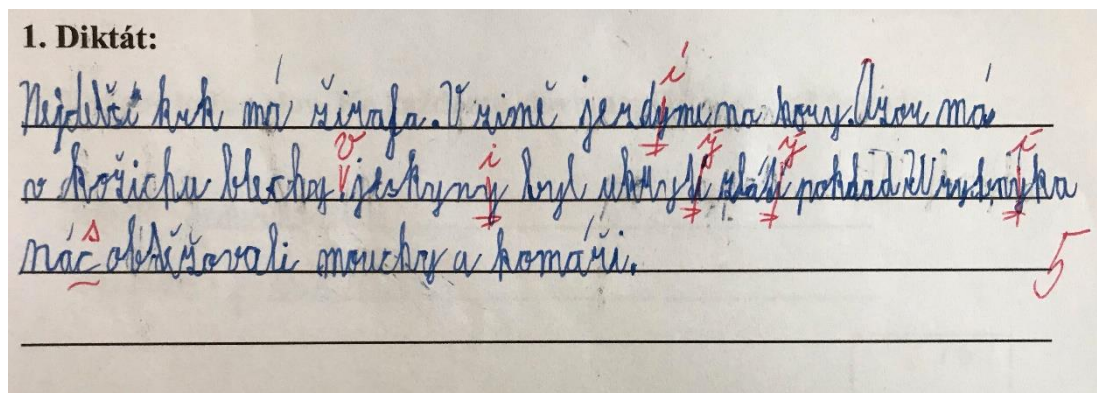 1. Diktát:
Nejdelší krk má žirafa. V zimě jezdýme na hory. Azor má
v kožichu blechy jeskyny byl ukrytí zlatí poklad U rybnyka
nác obtěžovali mouchy a komáři.
5